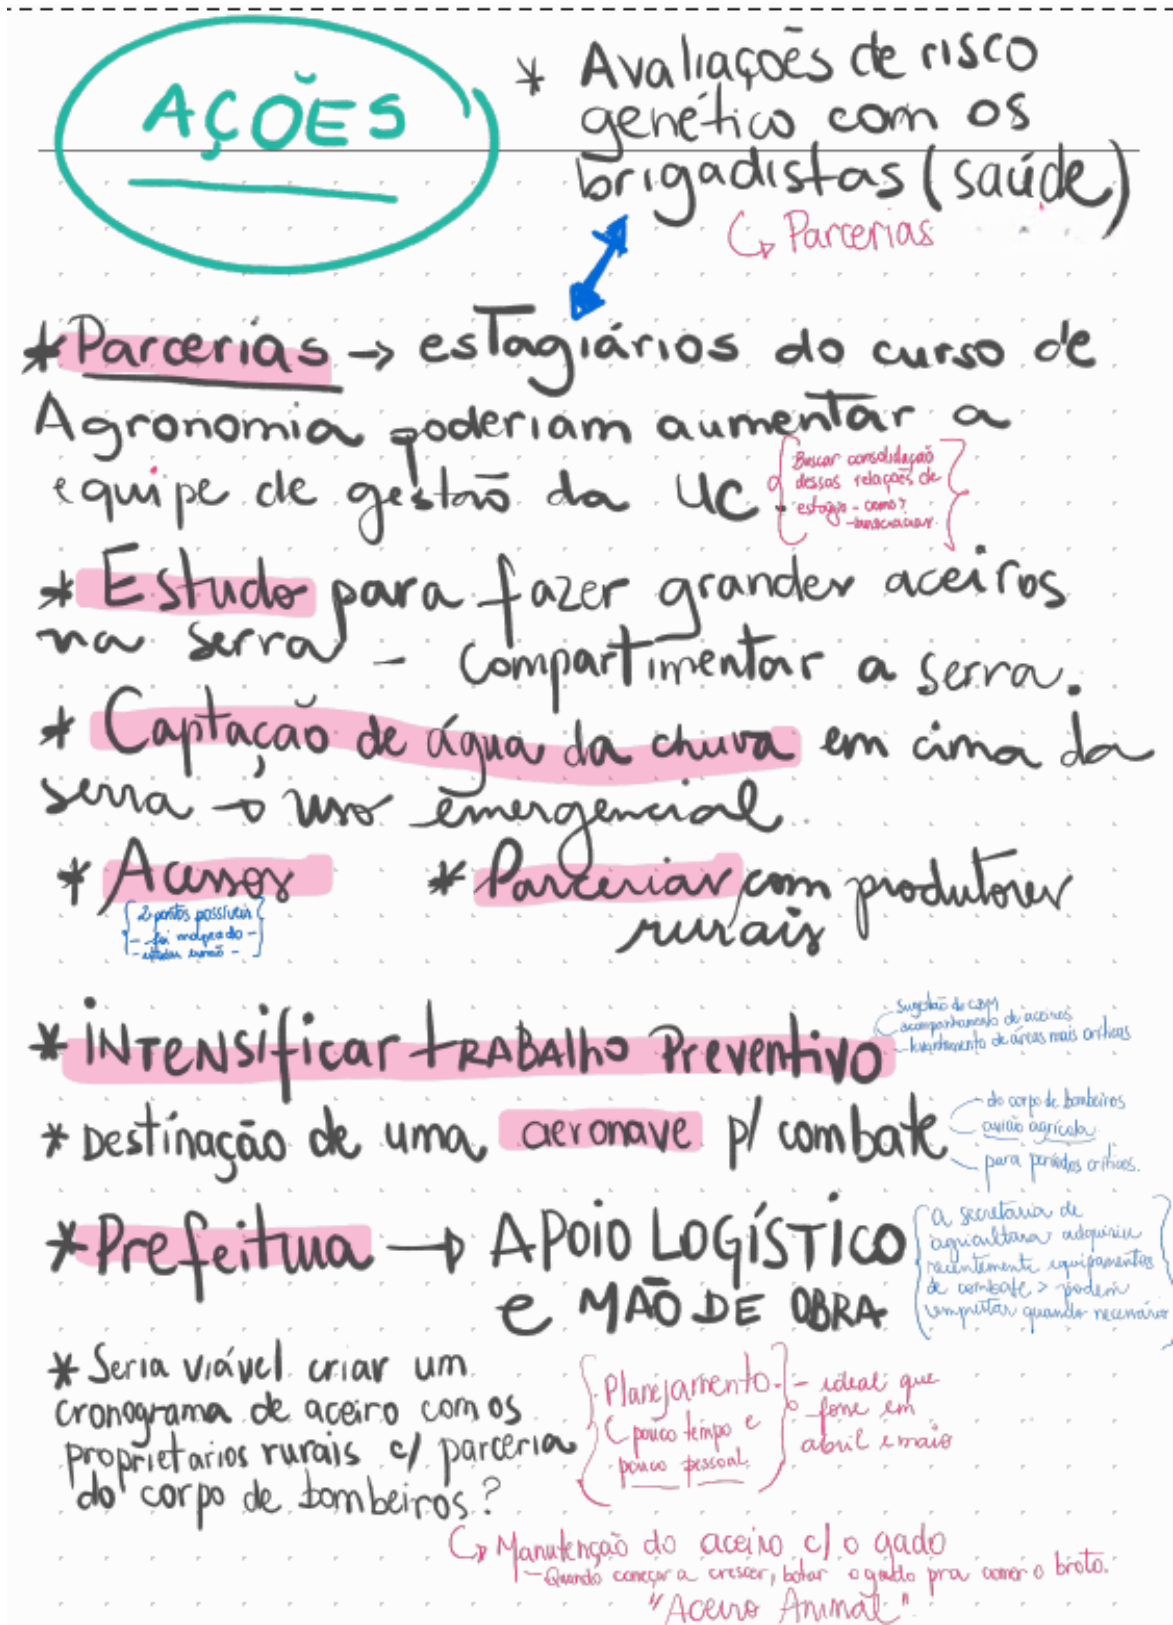 AÇÕES
* Avaliações de risco
genético com os
brigadistas (saúde)
↳ Parcerias
* Parcerias → estagiários do curso de
Agronomia poderiam aumentar a
equipe de gestão da UC.
Buscar consolidação
dessas relações de
estágio - como?
* Estudo para fazer grandes aceiros
na serra - compartimentar a serra.
* Captação de água da chuva em cima da
serra → uso emergencial.
* Acessos
2 pontos possíveis
- foi mapeado -
* Parcerias com produtores
rurais
* INTENSificar TRABAlho Preventivo
sugestão do CBM
acompanhamento de aceiros
- levantamento de áreas mais críticas
* Destinação de uma aeronave p/ combate
- do corpo de bombeiros
avião agrícola
- para períodos críticos.
* Prefeitura → APOIO LOGÍSTICO
e MÃO DE OBRA
a secretaria de
agricultura adquiriu
recentemente equipamentos
de combate > podem
emprestar quando necessário
* Seria viável criar um
cronograma de aceiro com os
proprietarios rurais c/ parceria
do corpo de bombeiros?
Planejamento
pouco tempo e
pouco pessoal
- ideal que
fosse em
abril e maio
↳ Manutenção do aceiro c/ o gado
- Quando começar a crescer, botar o gado pra comer o broto.
"Aceiro Animal"